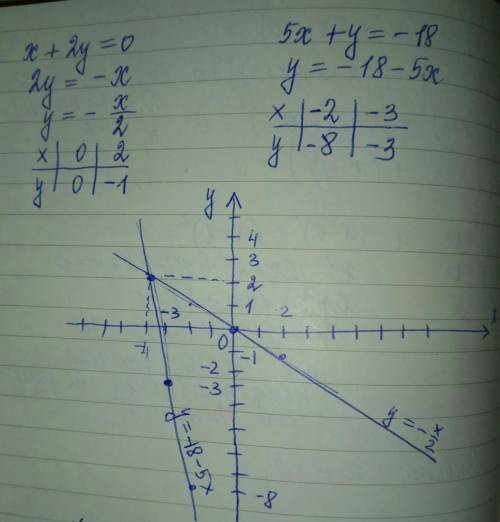 x + 2y = 0
2y = -x
y = - x/2
x | 0 | 2
y | 0 | -1
5x + y = -18
y = -18 - 5x
x | -2 | -3
y | -8 | -3
y
4
3
2
1
-4 -3 0 2
-1
-2
-3
-8
y = -18 - 5x
y = - x/2